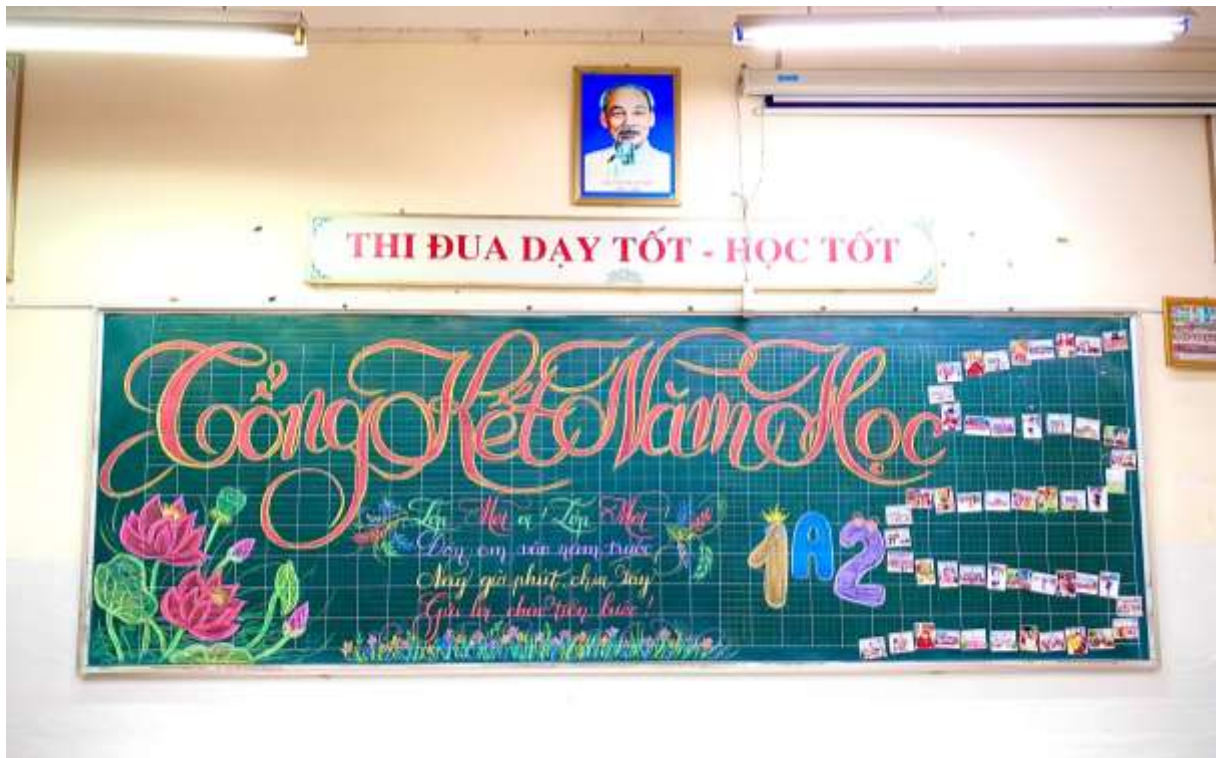 THI ĐUA DẠY TỐT - HỌC TỐT
Tổng Kết Năm Học
Lớp Một ơi! Lớp Một!
Đón em vào năm trước
Nay giờ phút chia tay
Gửi lời chào tiến bước!
1A2